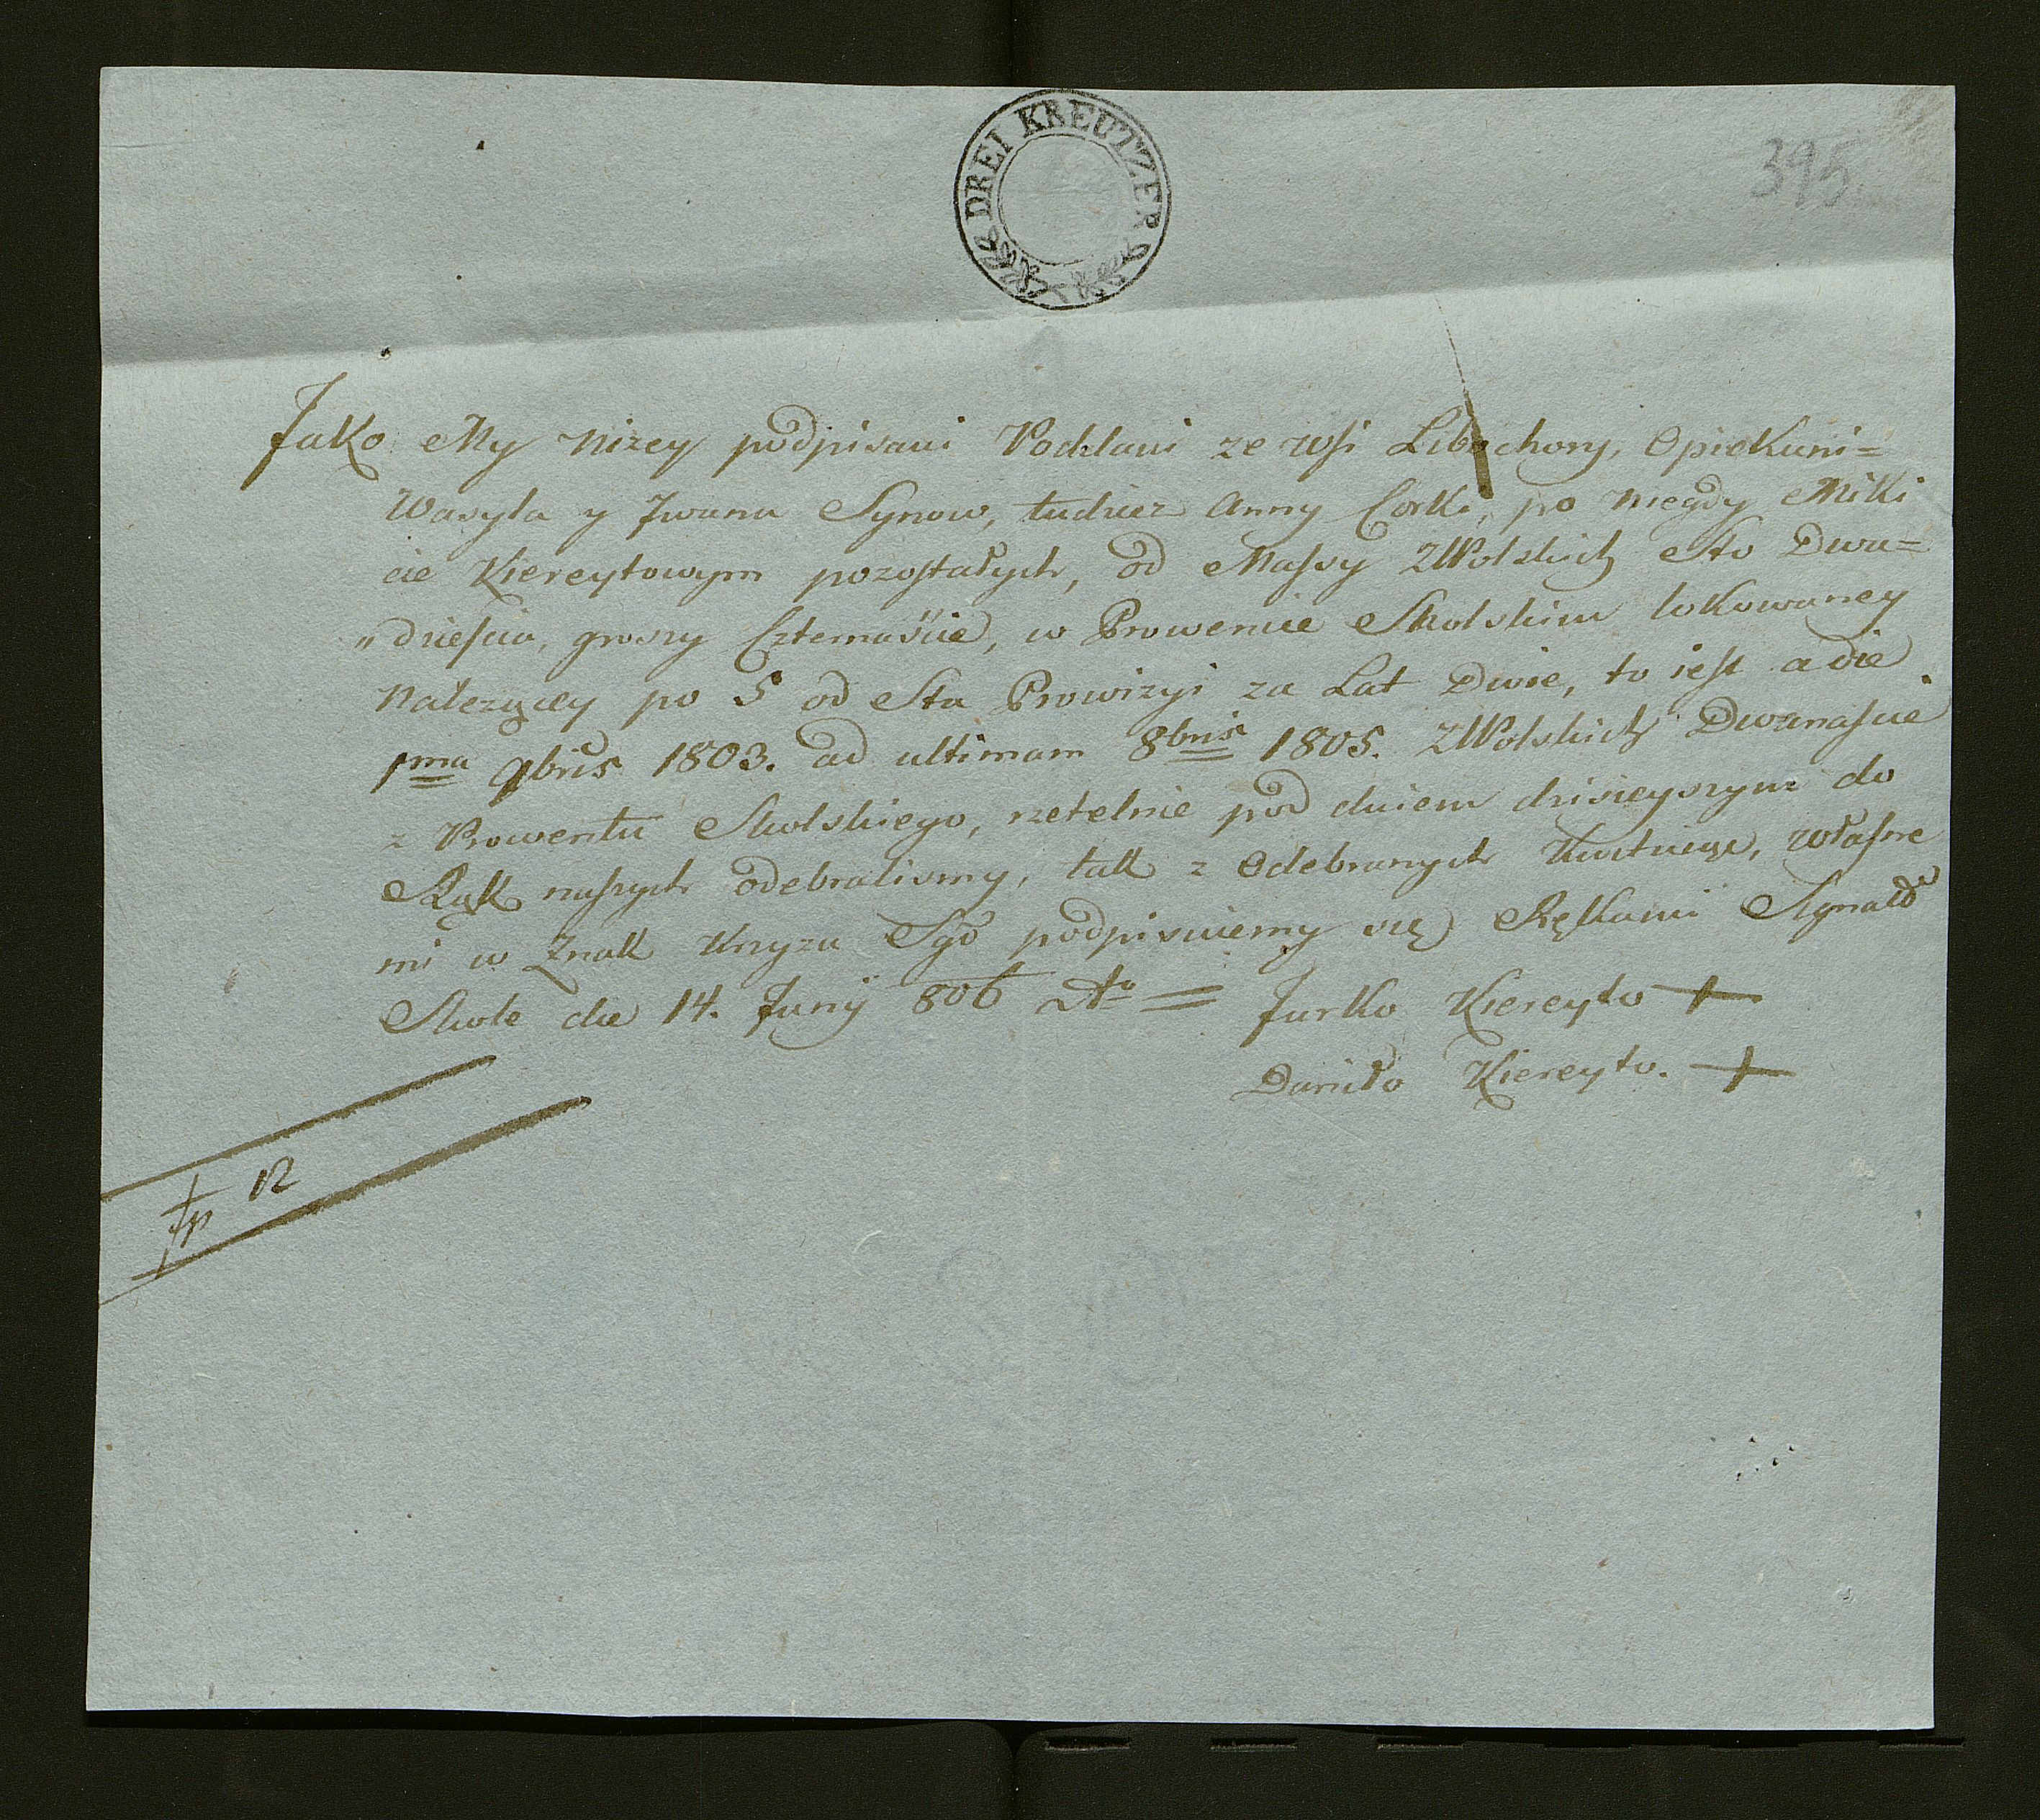 DREI KREUTZER
395
Jako My niżey podpisani Poddani ze wsi Libochory, Opiekuni=
Wasyla y Jwana Synow, tudziez Anny Corki, po niegdy Miki
cie Kiereytowym pozostałych, od Massy ZłPolskich Sto Dwa=
"dziescia, groszy Czternaście, w Prowencie Skolskim lokowaney
Nalezącey po 5 od Sta Prowizyi za Lat Dwie, to iest a die
1ma 9bris 1803. ad ultimam 8bris 1805. ZłPolskich Dwanascie
z Prowentu Skolskiego, rzetelnie pod dniem dzisieyszym do
Rąk naszych odebralismy, tak z Odebranych Kwituiąc, własne
mi w Znak Krzyza Sgo podpisuiemy się Rękami Sgnałd
Skole die 14. Junij 806 Ao = Jurko Kiereyto +
Daniło Kiereyto. +
fp 12